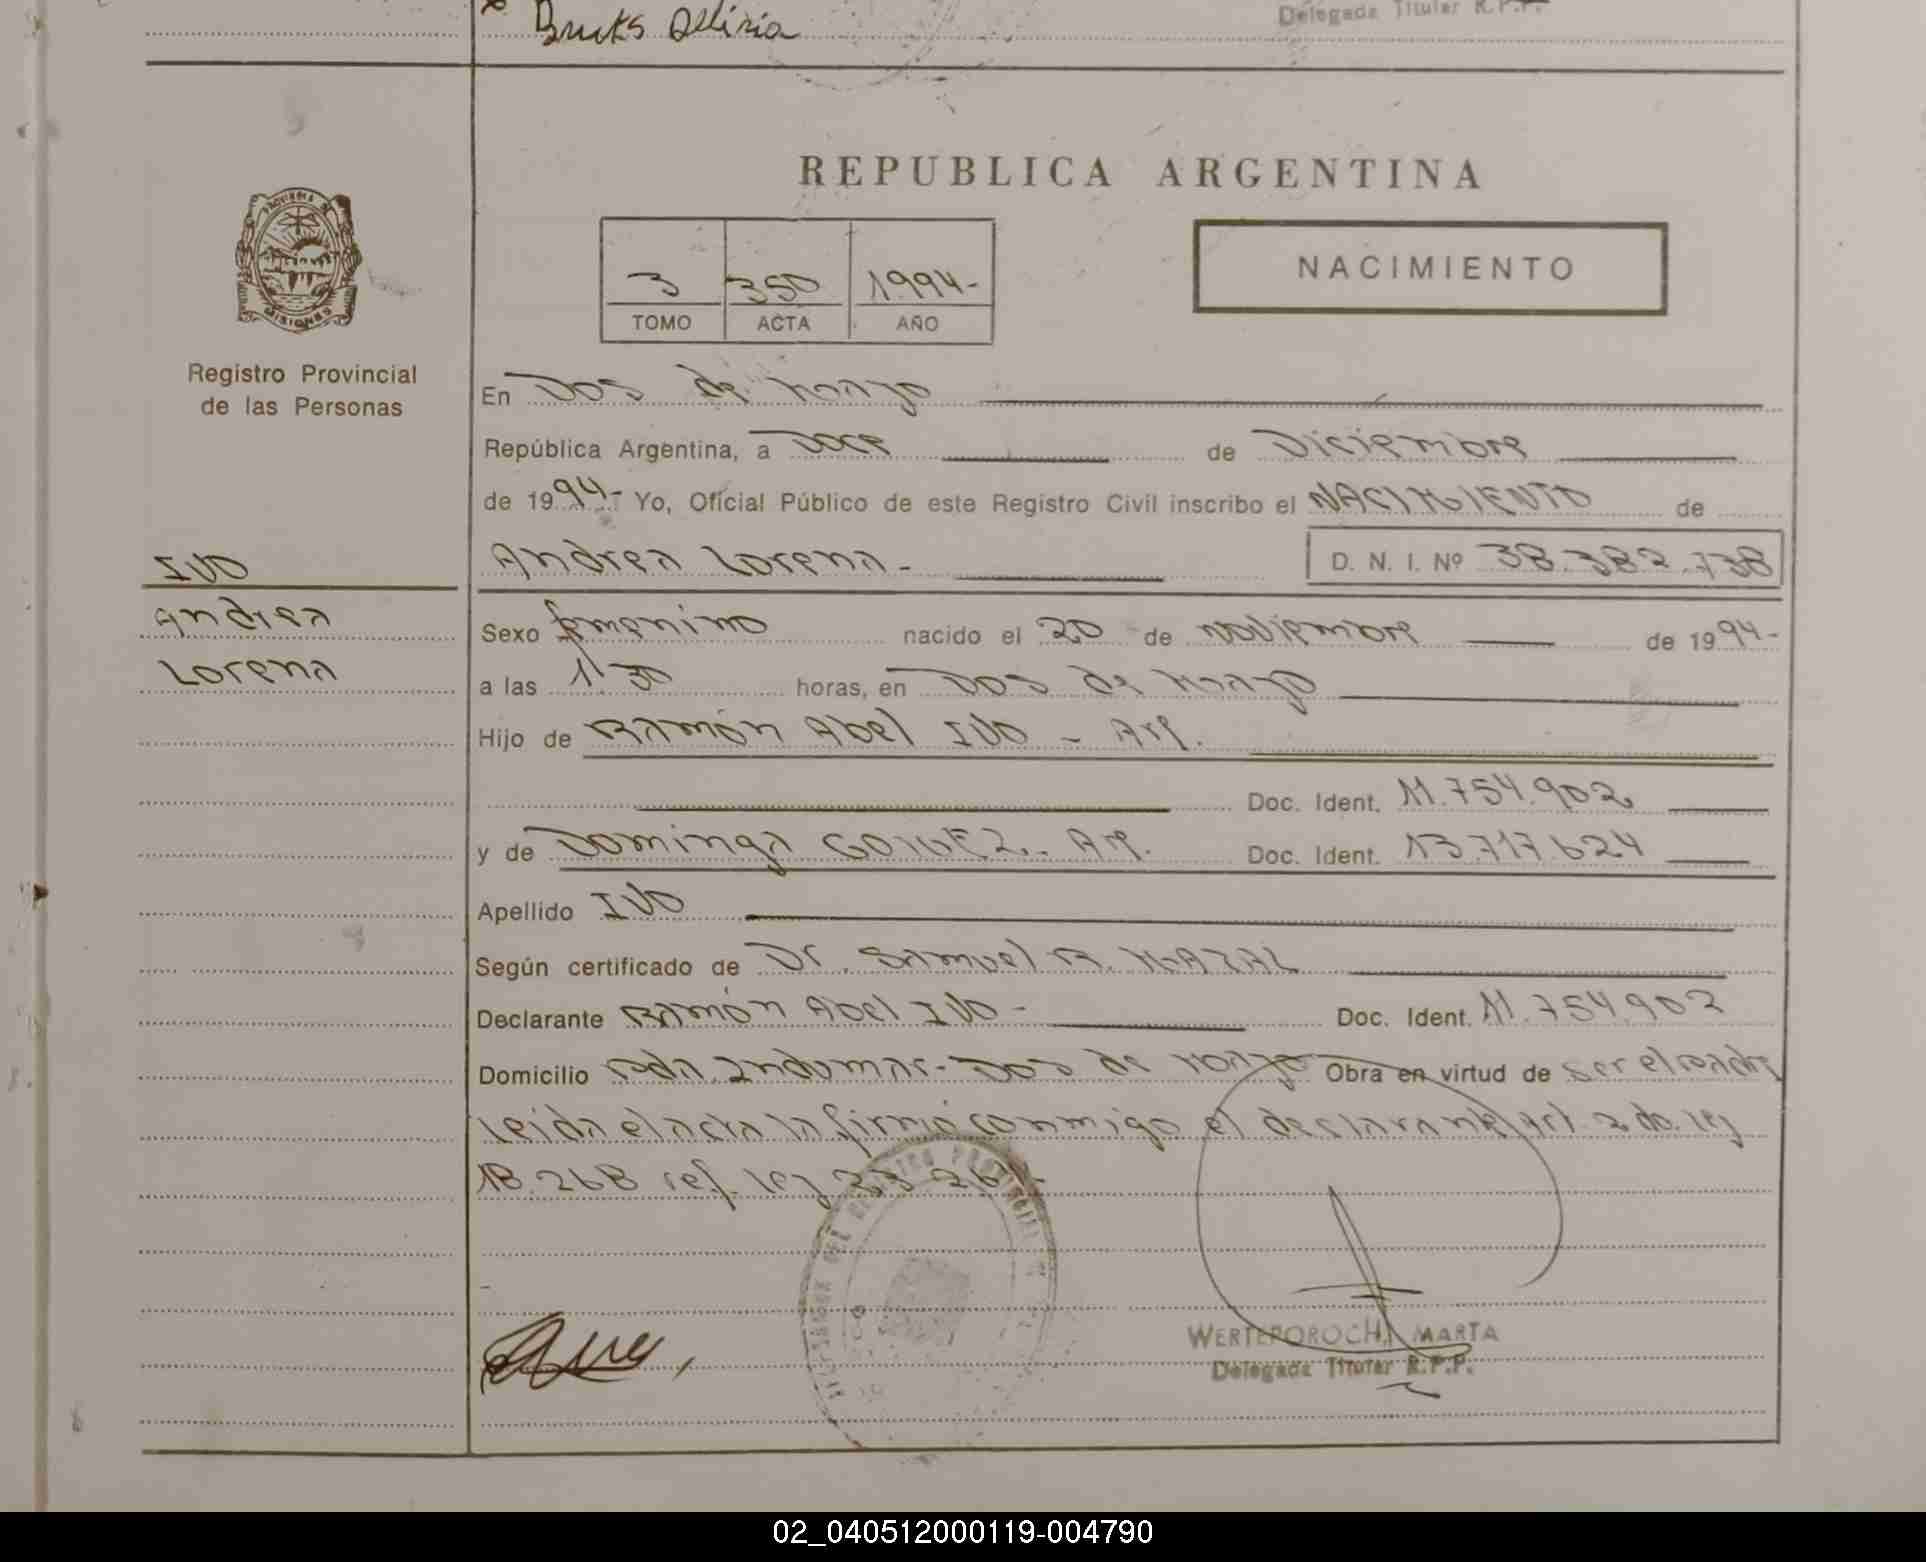 Bruks Delicia
Delegada Titular R.P.P.
REPUBLICA ARGENTINA
PROVINCIA DE
MISIONES
3 350 1994-
TOMO ACTA AÑO
NACIMIENTO
Registro Provincial
de las Personas
En Dos de Mayo
República Argentina, a Doce de Diciembre
de 1994- Yo, Oficial Público de este Registro Civil inscribo el NACIMIENTO de
IVO
Andrea Lorena- D. N. I. Nº 38.382.738
Andrea
Lorena
Sexo femenino nacido el 20 de noviembre de 1994-
a las 1:30 horas, en Dos de Mayo
Hijo de Ramón Abel IVO - Arg.
Doc. Ident. 11.754.902
y de Dominga GOMEZ - Arg. Doc. Ident. 13.717.624
Apellido IVO
Según certificado de Dr. Samuel R. MAZAL
Declarante Ramón Abel IVO - Doc. Ident. 11.754.902
Domicilio Dos de Mayo Obra en virtud de ser el padre
Leida el acta la firmó conmigo el declarante art. 2do. ley
18.268 ref. ley
WERTEPOROCH MARTA
Delegada Titular R.P.P.
02_040512000119-004790